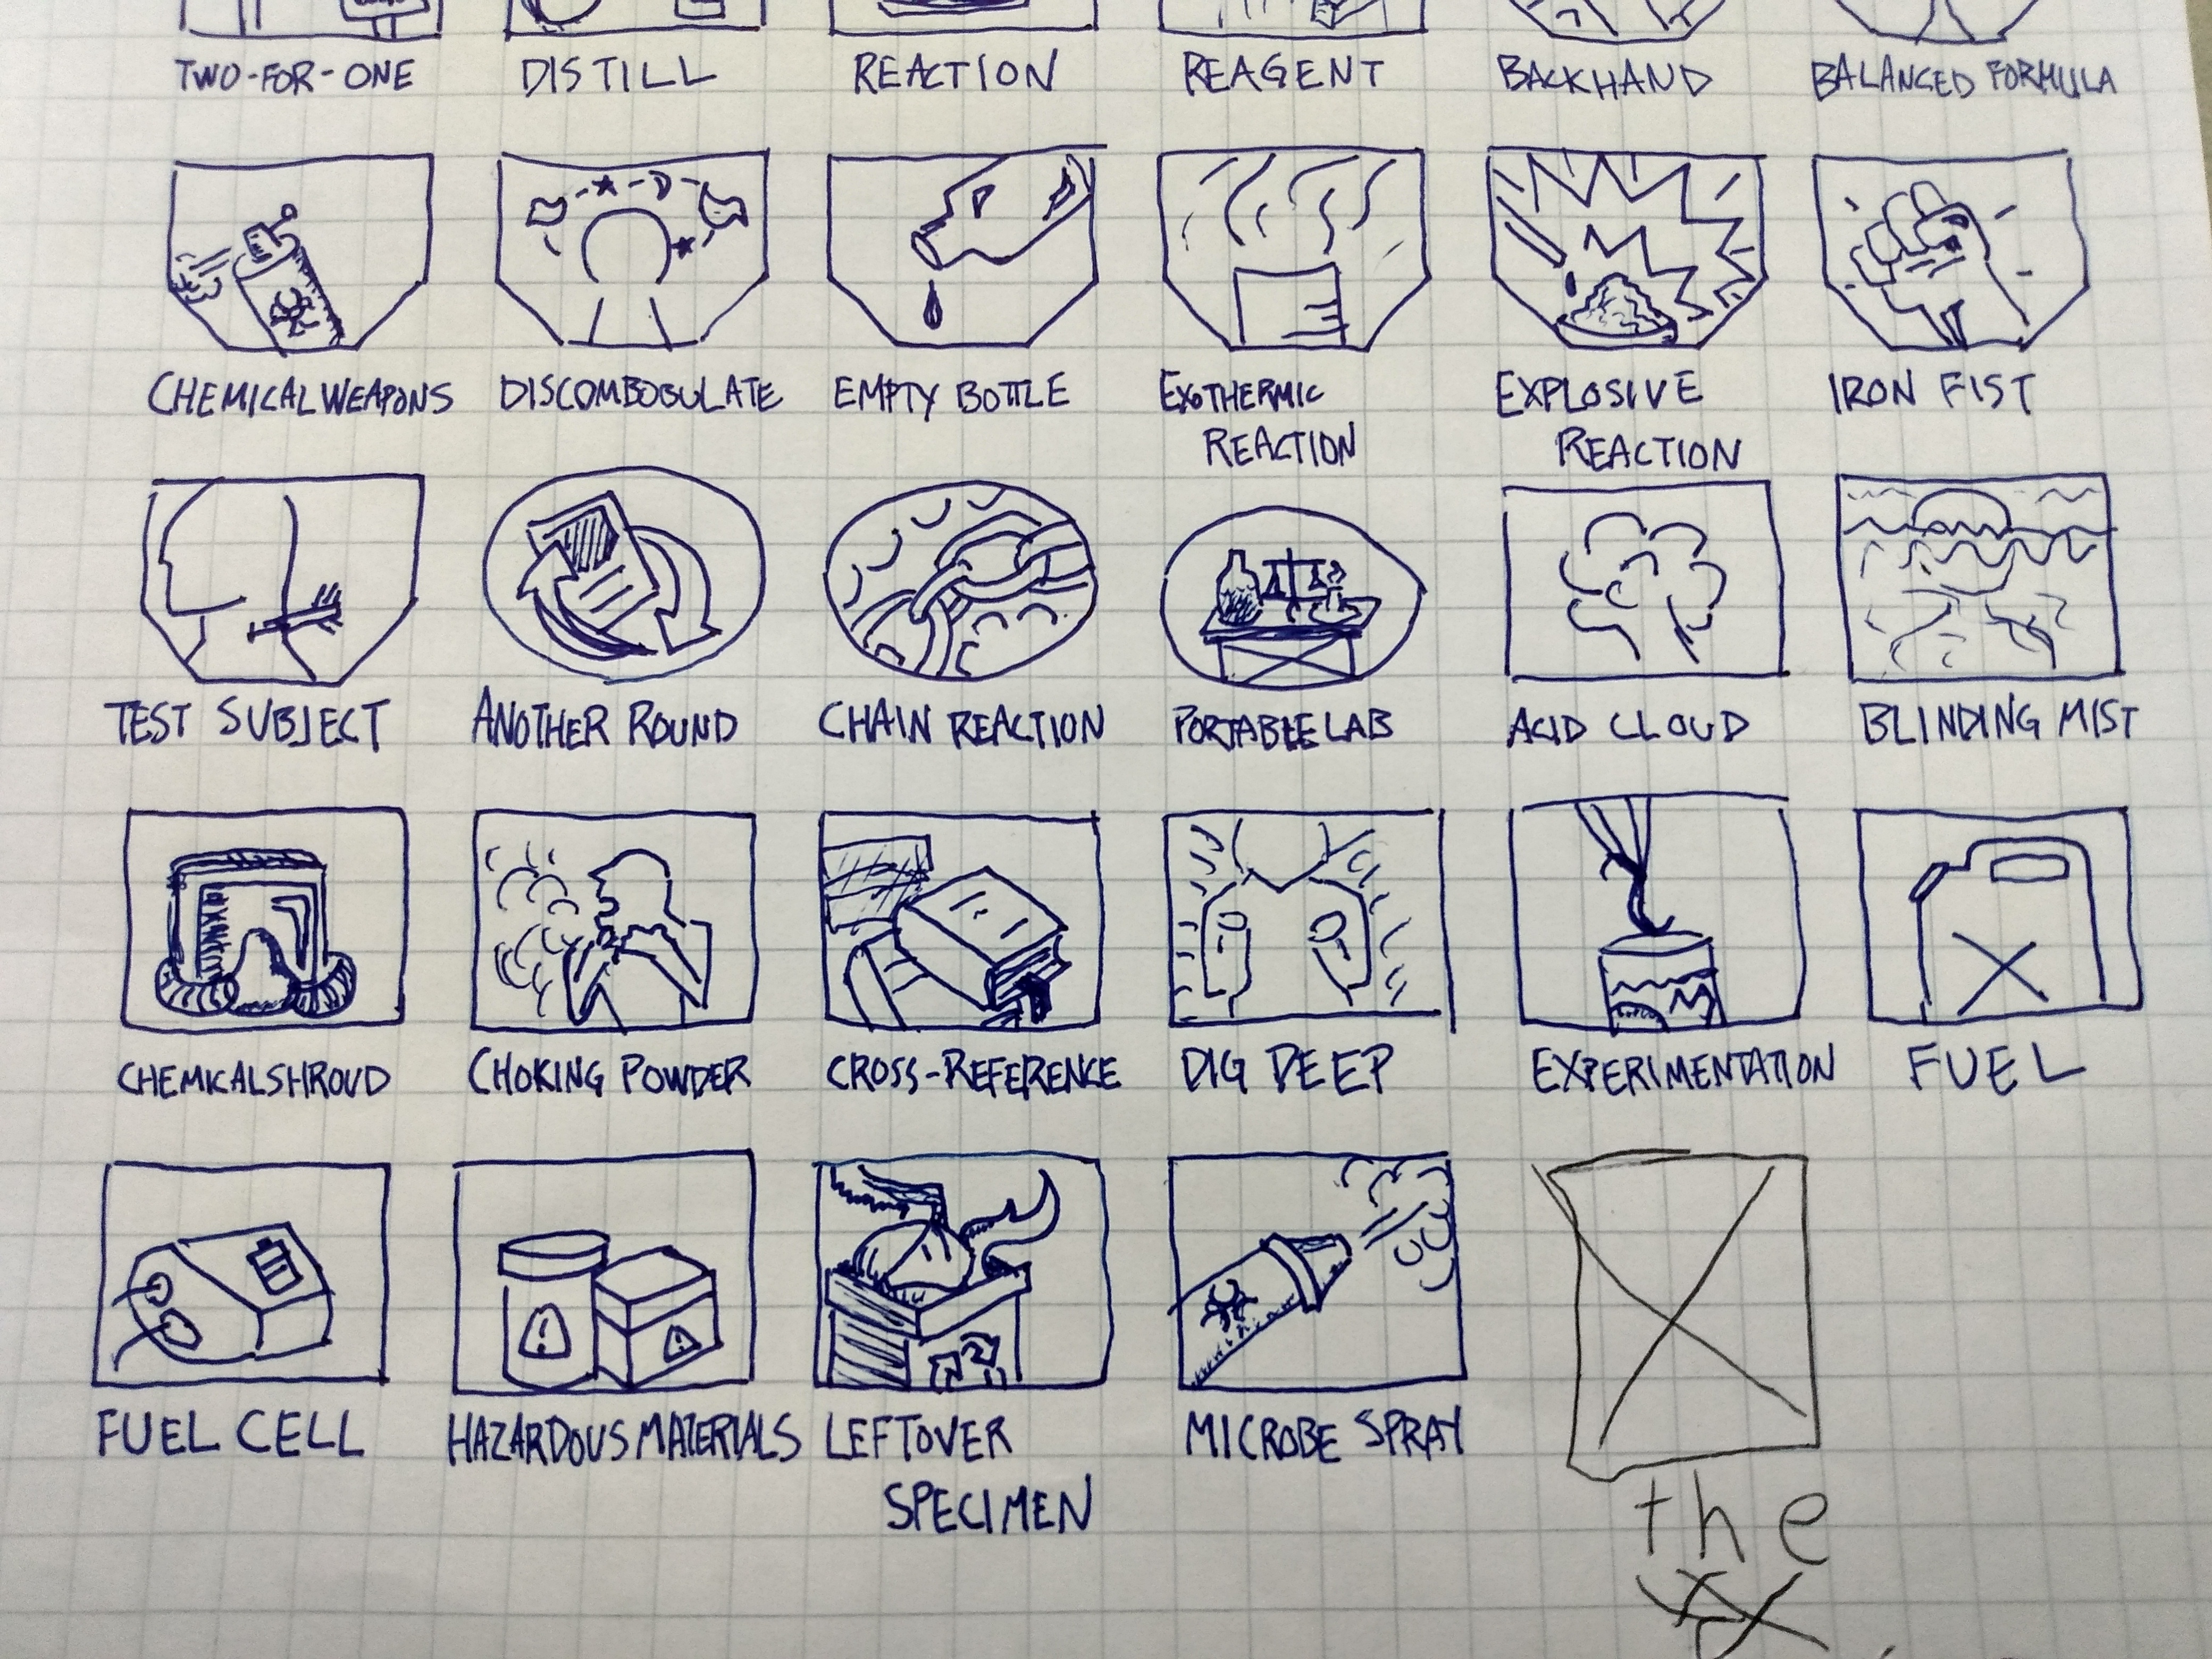 TWO-FOR-ONE DISTILL REACTION REAGENT BACKHAND BALANCED FORMULA
CHEMICAL WEAPONS DISCOMBOBULATE EMPTY BOTTLE EXOTHERMIC EXPLOSIVE IRON FIST
REACTION REACTION
TEST SUBJECT ANOTHER ROUND CHAIN REACTION PORTABLE LAB ACID CLOUD BLINDING MIST
CHEMICAL SHROUD CHOKING POWDER CROSS-REFERENCE DIG DEEP EXPERIMENTATION FUEL
FUEL CELL HAZARDOUS MATERIALS LEFTOVER MICROBE SPRAY
SPECIMEN
the